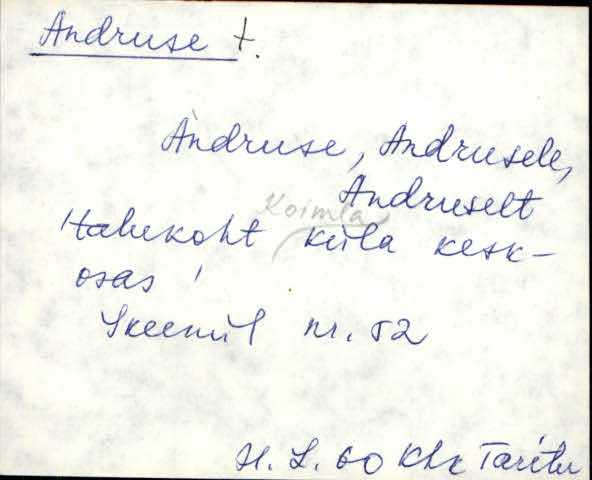 Andruse t.
Àndruse, Andrusele,
Andruselt
Koimla
Talukoht küla kesk-
osas
Skeemil nr. 52
H. L. 60 Khk Taritu